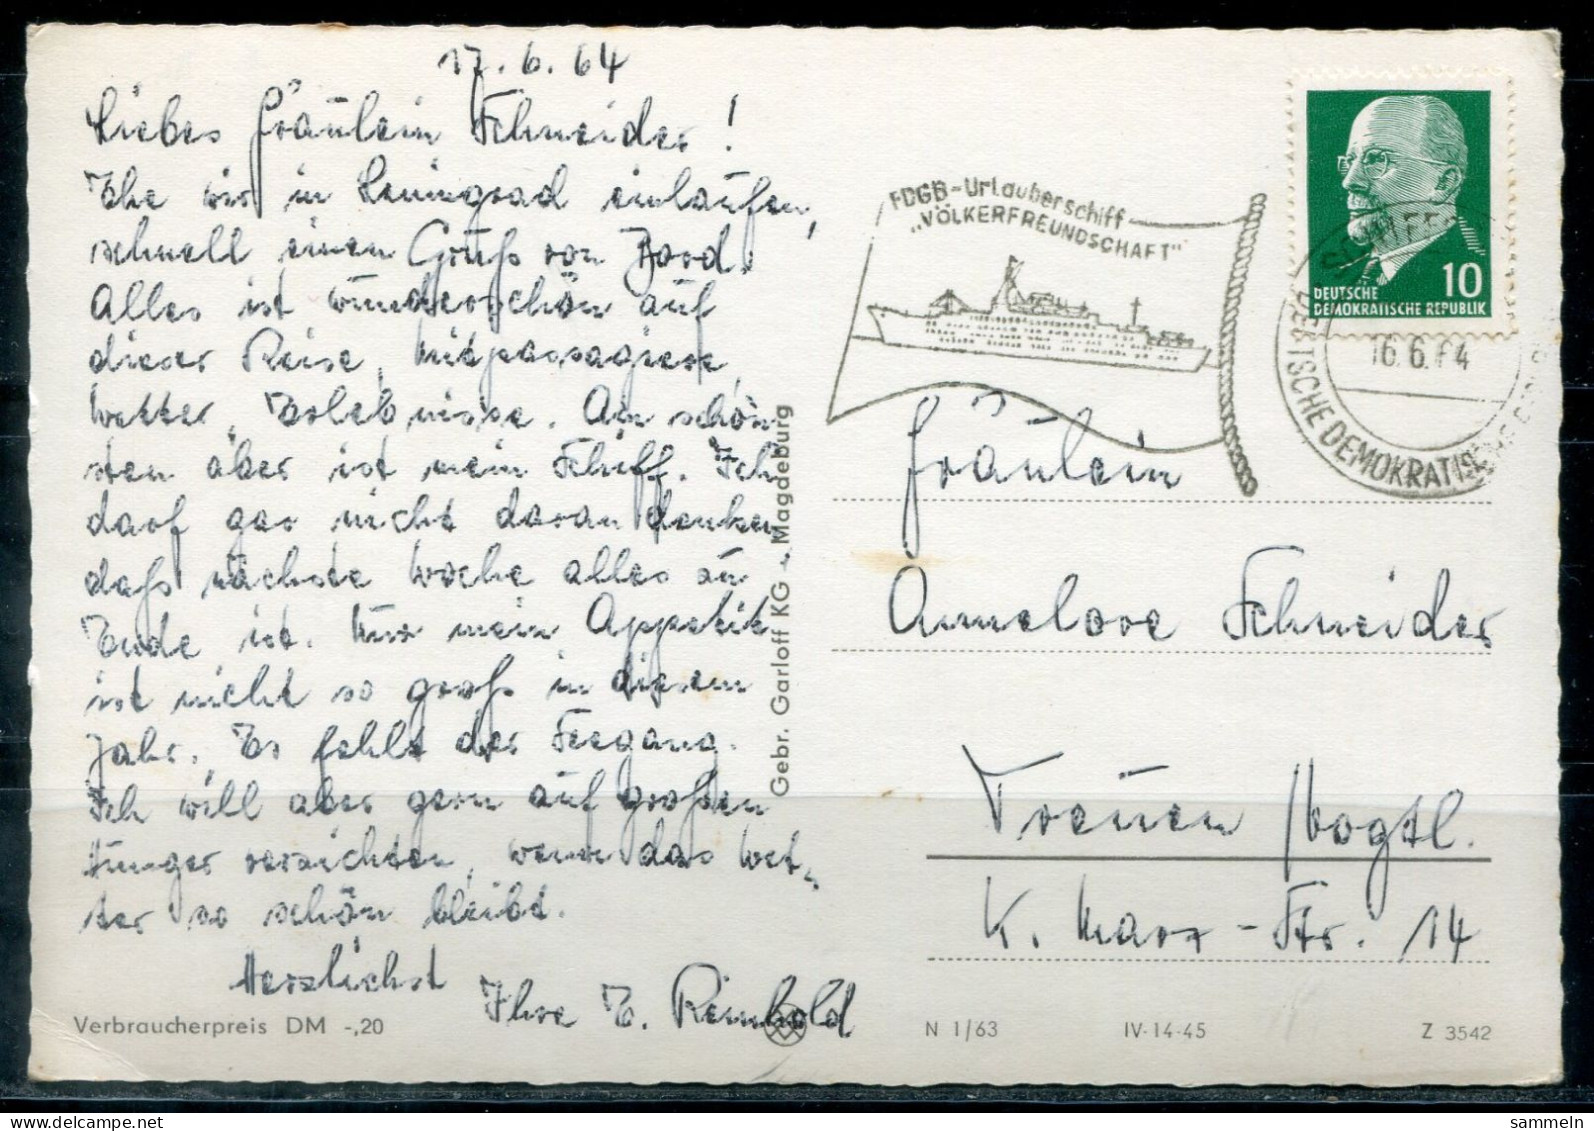 17.6.64
Liebes Fräulein Schneider!
Ehe wir in Leningrad einlaufen,
schnell einen Gruß von Bord.
Alles ist wunderschön auf
dieser Reise, Mitpassagiere,
Wetter, Erlebnisse. Am schön-
sten aber ist mein Schiff. Ich
darf gar nicht daran denken
daß nächste Woche alles zu
Ende ist. Nur mein Appetit
ist nicht so groß in diesem
Jahr. Es fehlt der Seegang.
Ich will aber gern auf großen
Hunger verzichten, wenn das Wet-
ter so schön bleibt.
Herzlichst
Ihre E. Reinhold
Verbraucherpreis DM -,20
Gebr. Garloff KG, Magdeburg
FDGB-Urlauberschiff
„VÖLKERFREUNDSCHAFT"
10
DEUTSCHE
DEMOKRATISCHE REPUBLIK
16.6.64
DEUTSCHE DEMOKRATISCHE
Fräulein
Annelore Schneider
Treuen /Vogtl.
K. Marx-Str. 14
N 1/63
IV-14-45
Z 3542
sammeln